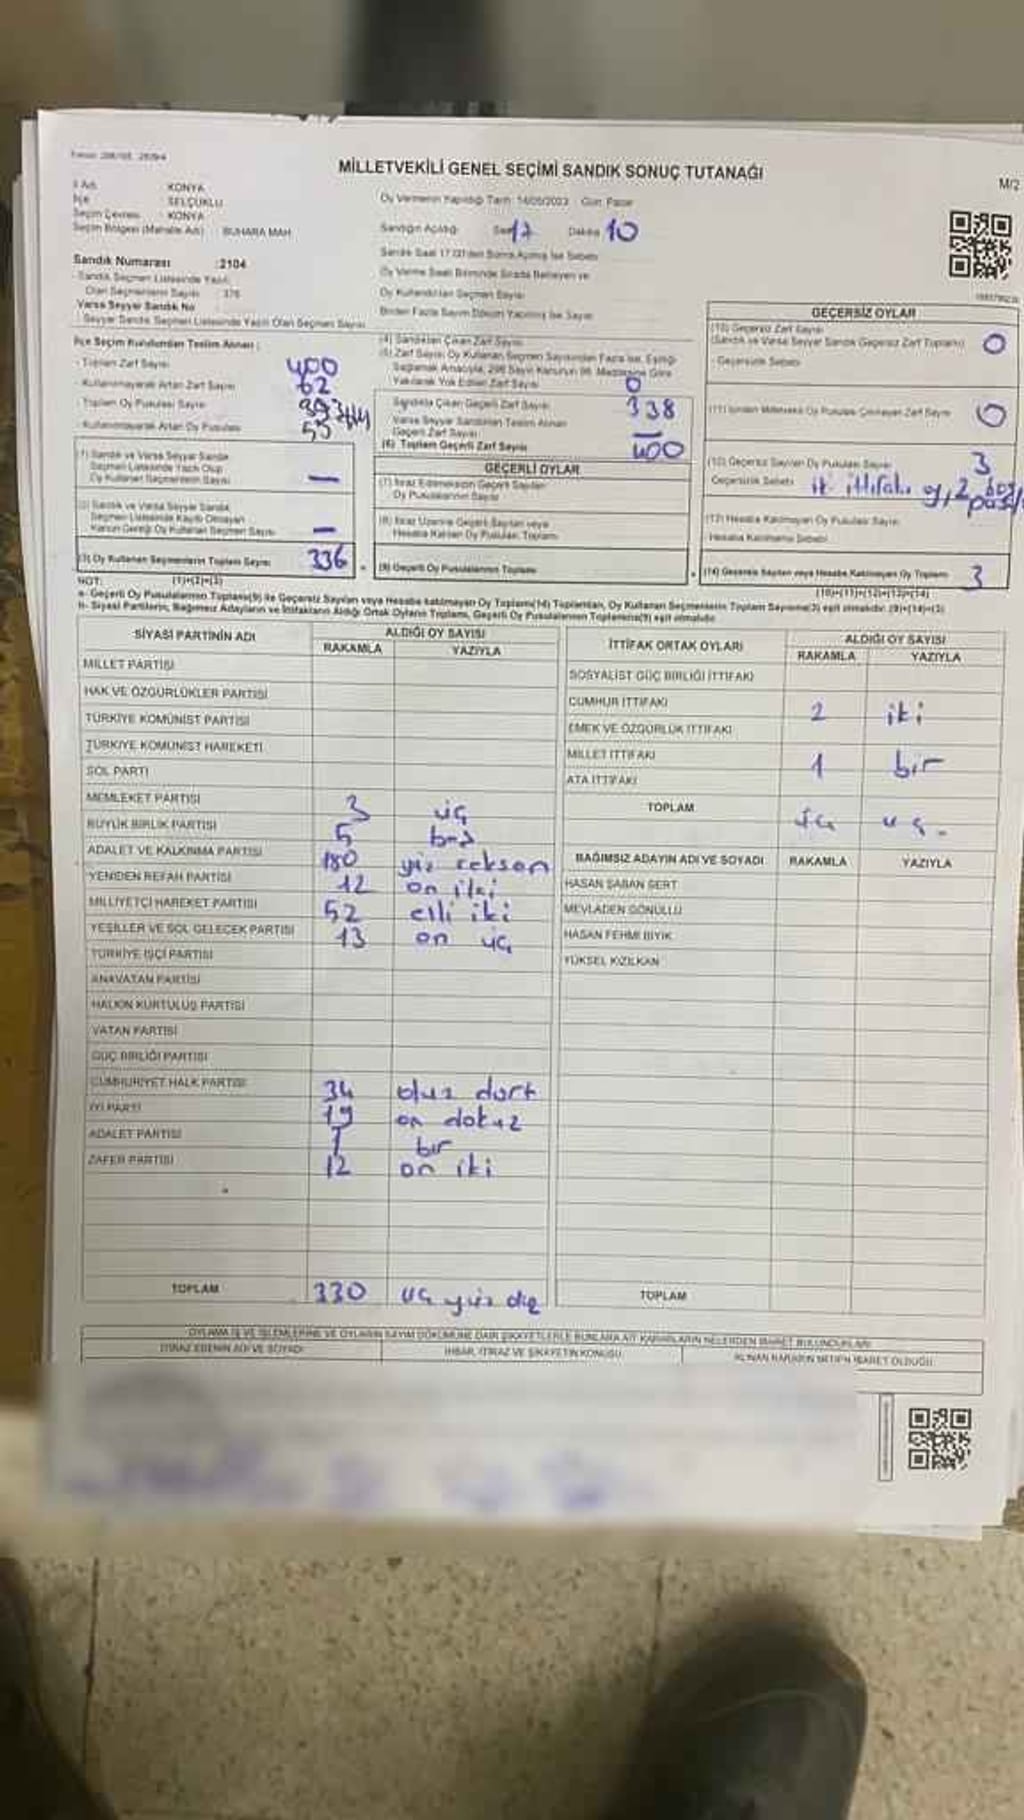 MİLLETVEKİLİ GENEL SEÇİMİ SANDIK SONUÇ TUTANAĞI
M/2
İli Adı KONYA
İlçe SELÇUKLU
Seçim Çevresi KONYA
Seçim Bölgesi (Mahalle Adı) BUHARA MAH
Sandık Numarası :2104
Sandık Seçmen Listesinde Yazılı
Olan Seçmenlerin Sayısı : 376
Varsa Seyyar Sandık No
Seyyar Sandık Seçmen Listesinde Yazılı Olan Seçmen Sayısı
Oy Vermenin Yapıldığı Tarih: 14/05/2023 Gün: Pazar
Sandığın Açıldığı Saat 17 Dakika 10
Sandık Saat 17:00'den Sonra Açılmış İse Sebebi
Oy Verme Saati Bitiminde Sırada Bekleyen ve
Oy Kullandırılan Seçmen Sayısı
Birden Fazla Sayım Döküm Yapılmış İse Sayısı
İlçe Seçim Kurulundan Teslim Alınan :
- Toplam Zarf Sayısı 400
- Kullanılmayarak Artan Zarf Sayısı 62
- Toplam Oy Pusulası Sayısı
- Kullanılmayarak Artan Oy Pusulası
(1) Sandık ve Varsa Seyyar Sandık
Seçmen Listesinde Yazılı Olup
Oy Kullanan Seçmenlerin Sayısı —
(2) Sandık ve Varsa Seyyar Sandık
Seçmen Listesinde Kayıtlı Olmayan
Kanun Gereği Oy Kullanan Seçmen Sayısı —
(3) Oy Kullanan Seçmenlerin Toplam Sayısı 336
(4) Sandıktan Çıkan Zarf Sayısı
(5) Zarf Sayısı Oy Kullanan Seçmen Sayısından Fazla İse, Eşitliği
Sağlamak Amacıyla, 298 Sayılı Kanunun 98. Maddesine Göre
Yakılarak Yok Edilen Zarf Sayısı 0
Sandıkta Çıkan Geçerli Zarf Sayısı 338
Varsa Seyyar Sandıktan Teslim Alınan
Geçerli Zarf Sayısı —
(6) Toplam Geçerli Zarf Sayısı 400
GEÇERLİ OYLAR
(7) İtiraz Edilmeksizin Geçerli Sayılan
Oy Pusulalarının Sayısı
(8) İtiraz Üzerine Geçerli Sayılan veya
Hesaba Katılan Oy Pusulaları Toplamı
(9) Geçerli Oy Pusulalarının Toplamı
GEÇERSİZ OYLAR
(10) Geçersiz Zarf Sayısı
(Sandık ve Varsa Seyyar Sandık Geçersiz Zarf Toplamı) 0
- Geçersizlik Sebebi
(11) İçinden Milletvekili Oy Pusulası Çıkmayan Zarf Sayısı 0
(12) Geçersiz Sayılan Oy Pusulası Sayısı 3
Geçersizlik Sebebi ittifakı oy, 2 boş
(13) Hesaba Katılmayan Oy Pusulası Sayısı
Hesaba Katılmama Sebebi
(14) Geçersiz Sayılan veya Hesaba Katılmayan Oy Toplamı 3
(10)+(11)+(12)+(13)=(14)
NOT: (1)+(2)=(3)
a- Geçerli Oy Pusulalarının Toplamı(9) ile Geçersiz Sayılan veya Hesaba katılmayan Oy Toplamı(14) Toplamları, Oy Kullanan Seçmenlerin Toplam Sayısına(3) eşit olmalıdır. (9)+(14)=(3)
b- Siyasi Partilerin, Bağımsız Adayların ve İttifakların Aldığı Ortak Oyların Toplamı, Geçerli Oy Pusulalarının Toplamına(9) eşit olmalıdır.
SİYASİ PARTİNİN ADI ALDIĞI OY SAYISI
RAKAMLA YAZIYLA
MİLLET PARTİSİ
HAK VE ÖZGÜRLÜKLER PARTİSİ
TÜRKİYE KOMÜNİST PARTİSİ
TÜRKİYE KOMÜNİST HAREKETİ
SOL PARTİ
MEMLEKET PARTİSİ 3 üç
BÜYÜK BİRLİK PARTİSİ 5 beş
ADALET VE KALKINMA PARTİSİ 180 yüz seksen
YENİDEN REFAH PARTİSİ 12 on iki
MİLLİYETÇİ HAREKET PARTİSİ 52 elli iki
YEŞİLLER VE SOL GELECEK PARTİSİ 13 on üç
TÜRKİYE İŞÇİ PARTİSİ
ANAVATAN PARTİSİ
HALKIN KURTULUŞ PARTİSİ
VATAN PARTİSİ
GÜÇ BİRLİĞİ PARTİSİ
CUMHURİYET HALK PARTİSİ 34 otuz dört
İYİ PARTİ 19 on dokuz
ADALET PARTİSİ 1 bir
ZAFER PARTİSİ 12 on iki
TOPLAM 330 üç yüz
İTTİFAK ORTAK OYLARI ALDIĞI OY SAYISI
RAKAMLA YAZIYLA
SOSYALİST GÜÇ BİRLİĞİ İTTİFAKI
CUMHUR İTTİFAKI 2 iki
EMEK VE ÖZGÜRLÜK İTTİFAKI
MİLLET İTTİFAKI 1 bir
ATA İTTİFAKI
TOPLAM üç üç
BAĞIMSIZ ADAYIN ADI VE SOYADI RAKAMLA YAZIYLA
HASAN ŞABAN SERT
MEVLADEN GÖNÜLLÜ
HASAN FEHMİ BIYIK
YÜKSEL KIZILKAN
TOPLAM
OYLAMA İŞ VE İŞLEMLERİNE VE OYLARIN SAYIM DÖKÜMÜNE DAİR ŞİKAYETLERLE BUNLARA AİT KARARLARIN NELERDEN İBARET BULUNDUKLARI
İTİRAZ EDENİN ADI VE SOYADI İHBAR, İTİRAZ VE ŞİKAYETİN KONUSU ALINAN KARARIN NEDEN İBARET OLDUĞU